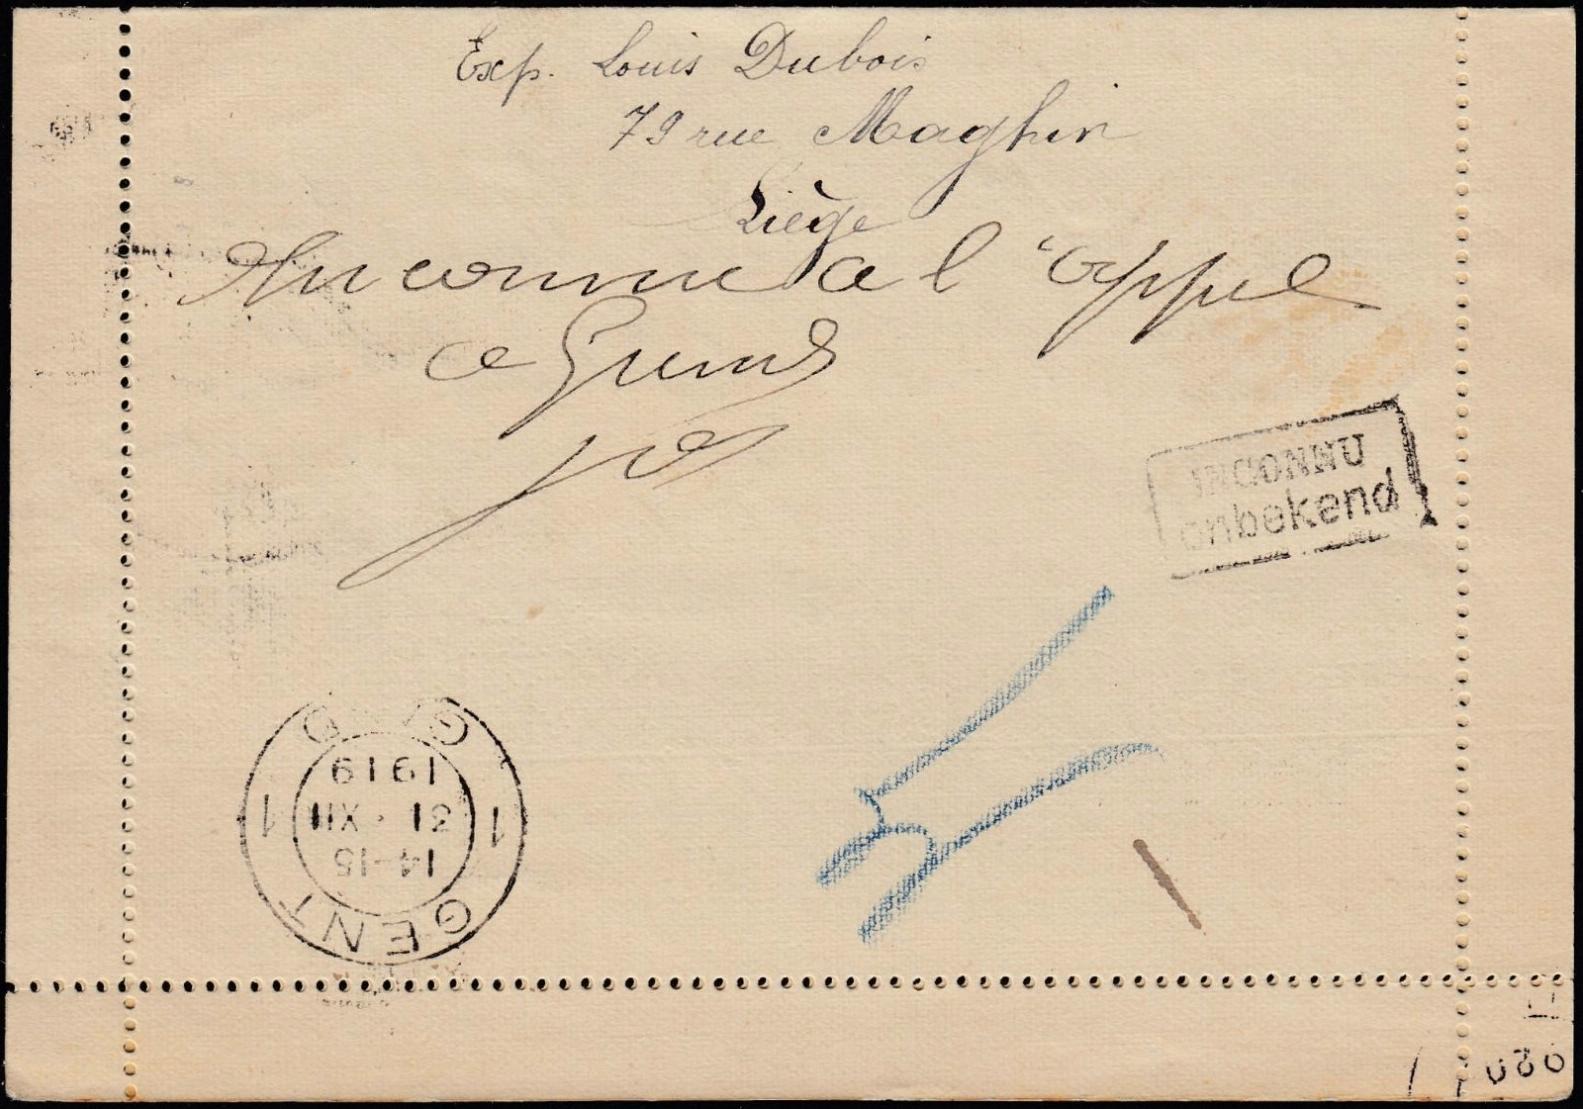 Exp. Louis Dubois
79 rue Maghin
Liège
Inconnu a l'appel
a Gand
INCONNU
onbekend
GENT
14-15
1 31 · XII 1
1919